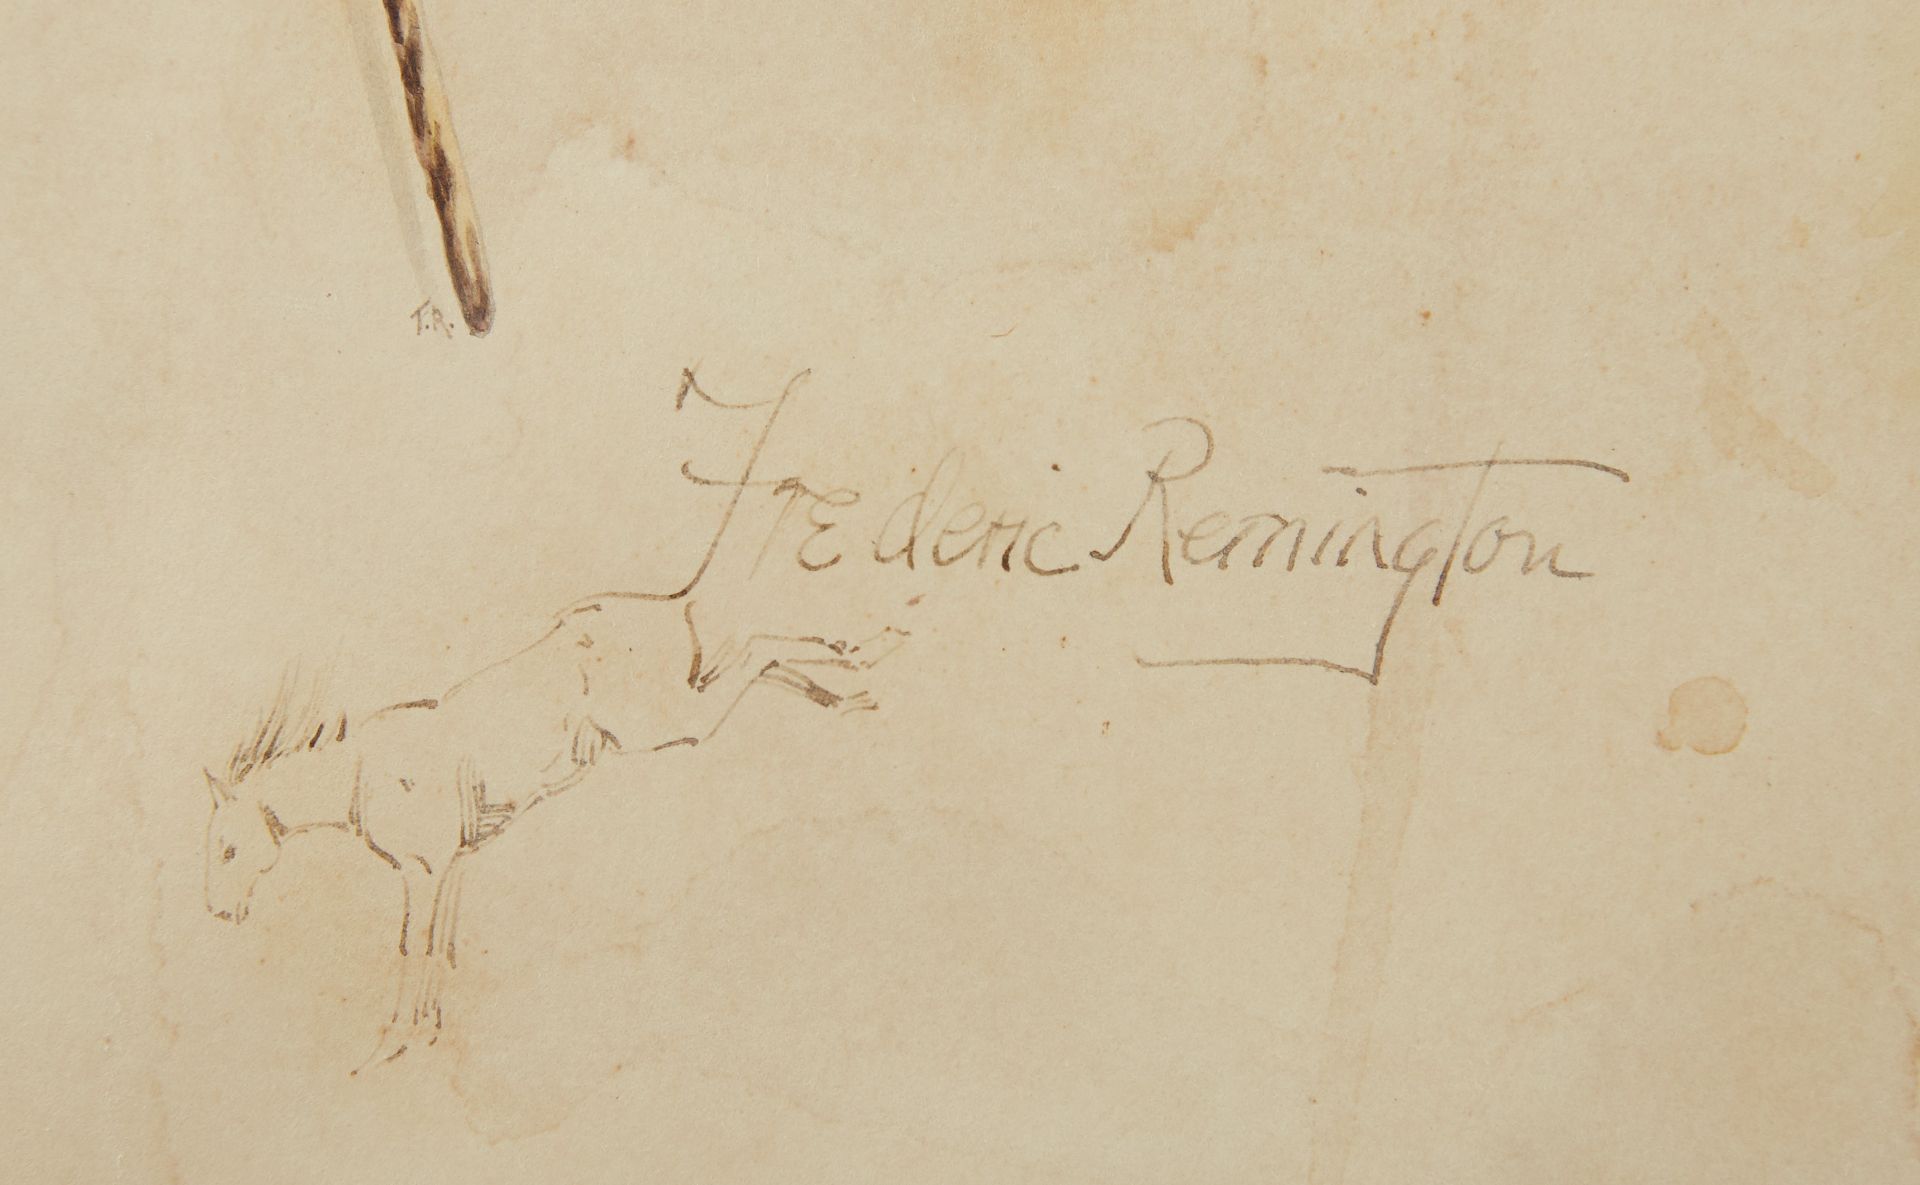 T.R.
Frederic Remington